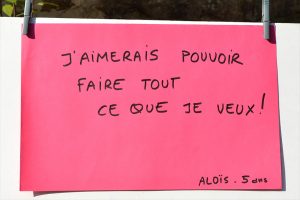 J'AIMERAIS POUVOIR
FAIRE TOUT
CE QUE JE VEUX!
ALOÏS. 5 ans